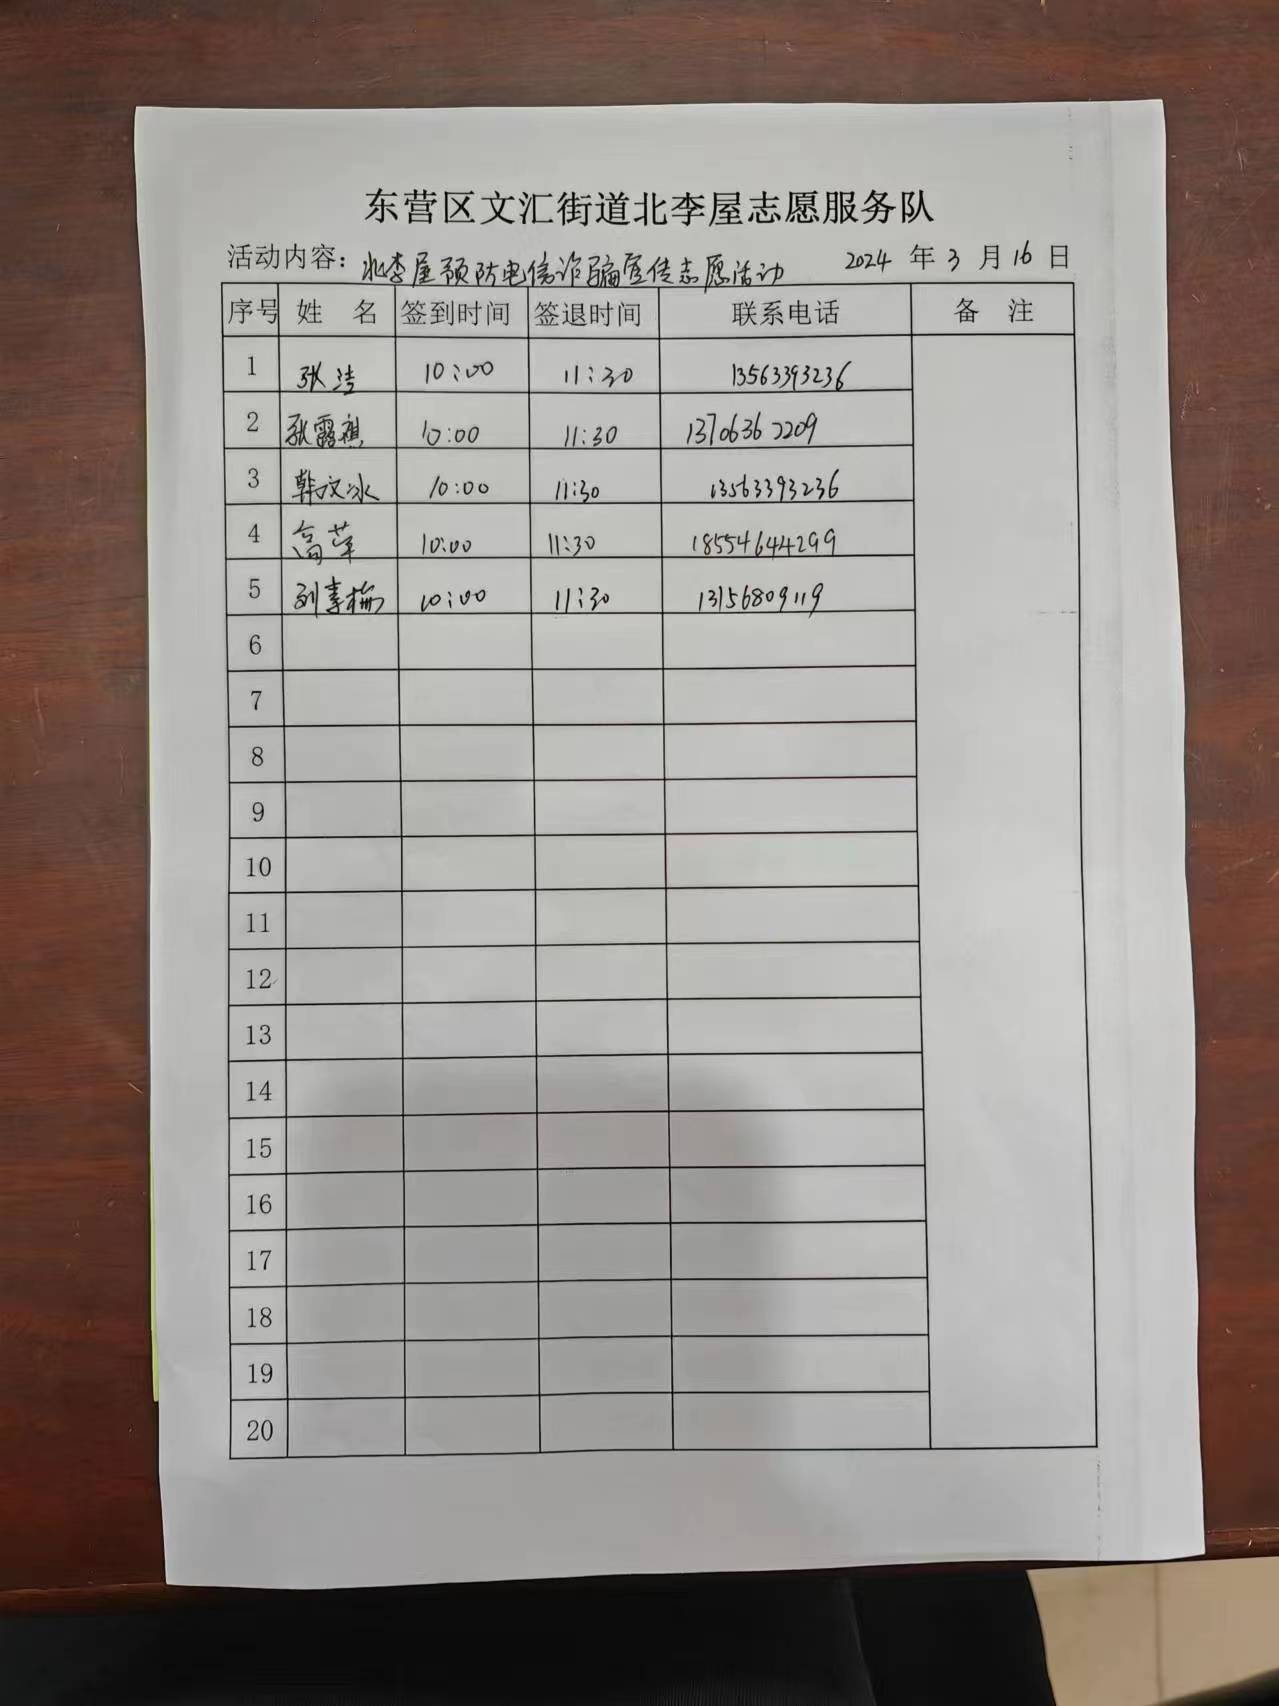 东营区文汇街道北李屋志愿服务队
活动内容：北李屋预防电信诈骗宣传志愿活动 2024 年 3 月 16 日
序号 姓 名 签到时间 签退时间 联系电话 备 注
1 张洁 10:00 11:30 13563393236
2 张露祺 10:00 11:30 13706362209
3 韩文冰 10:00 11:30 13563393236
4 高苹 10:00 11:30 18554644299
5 刘春梅 10:00 11:30 13156809119
6
7
8
9
10
11
12
13
14
15
16
17
18
19
20